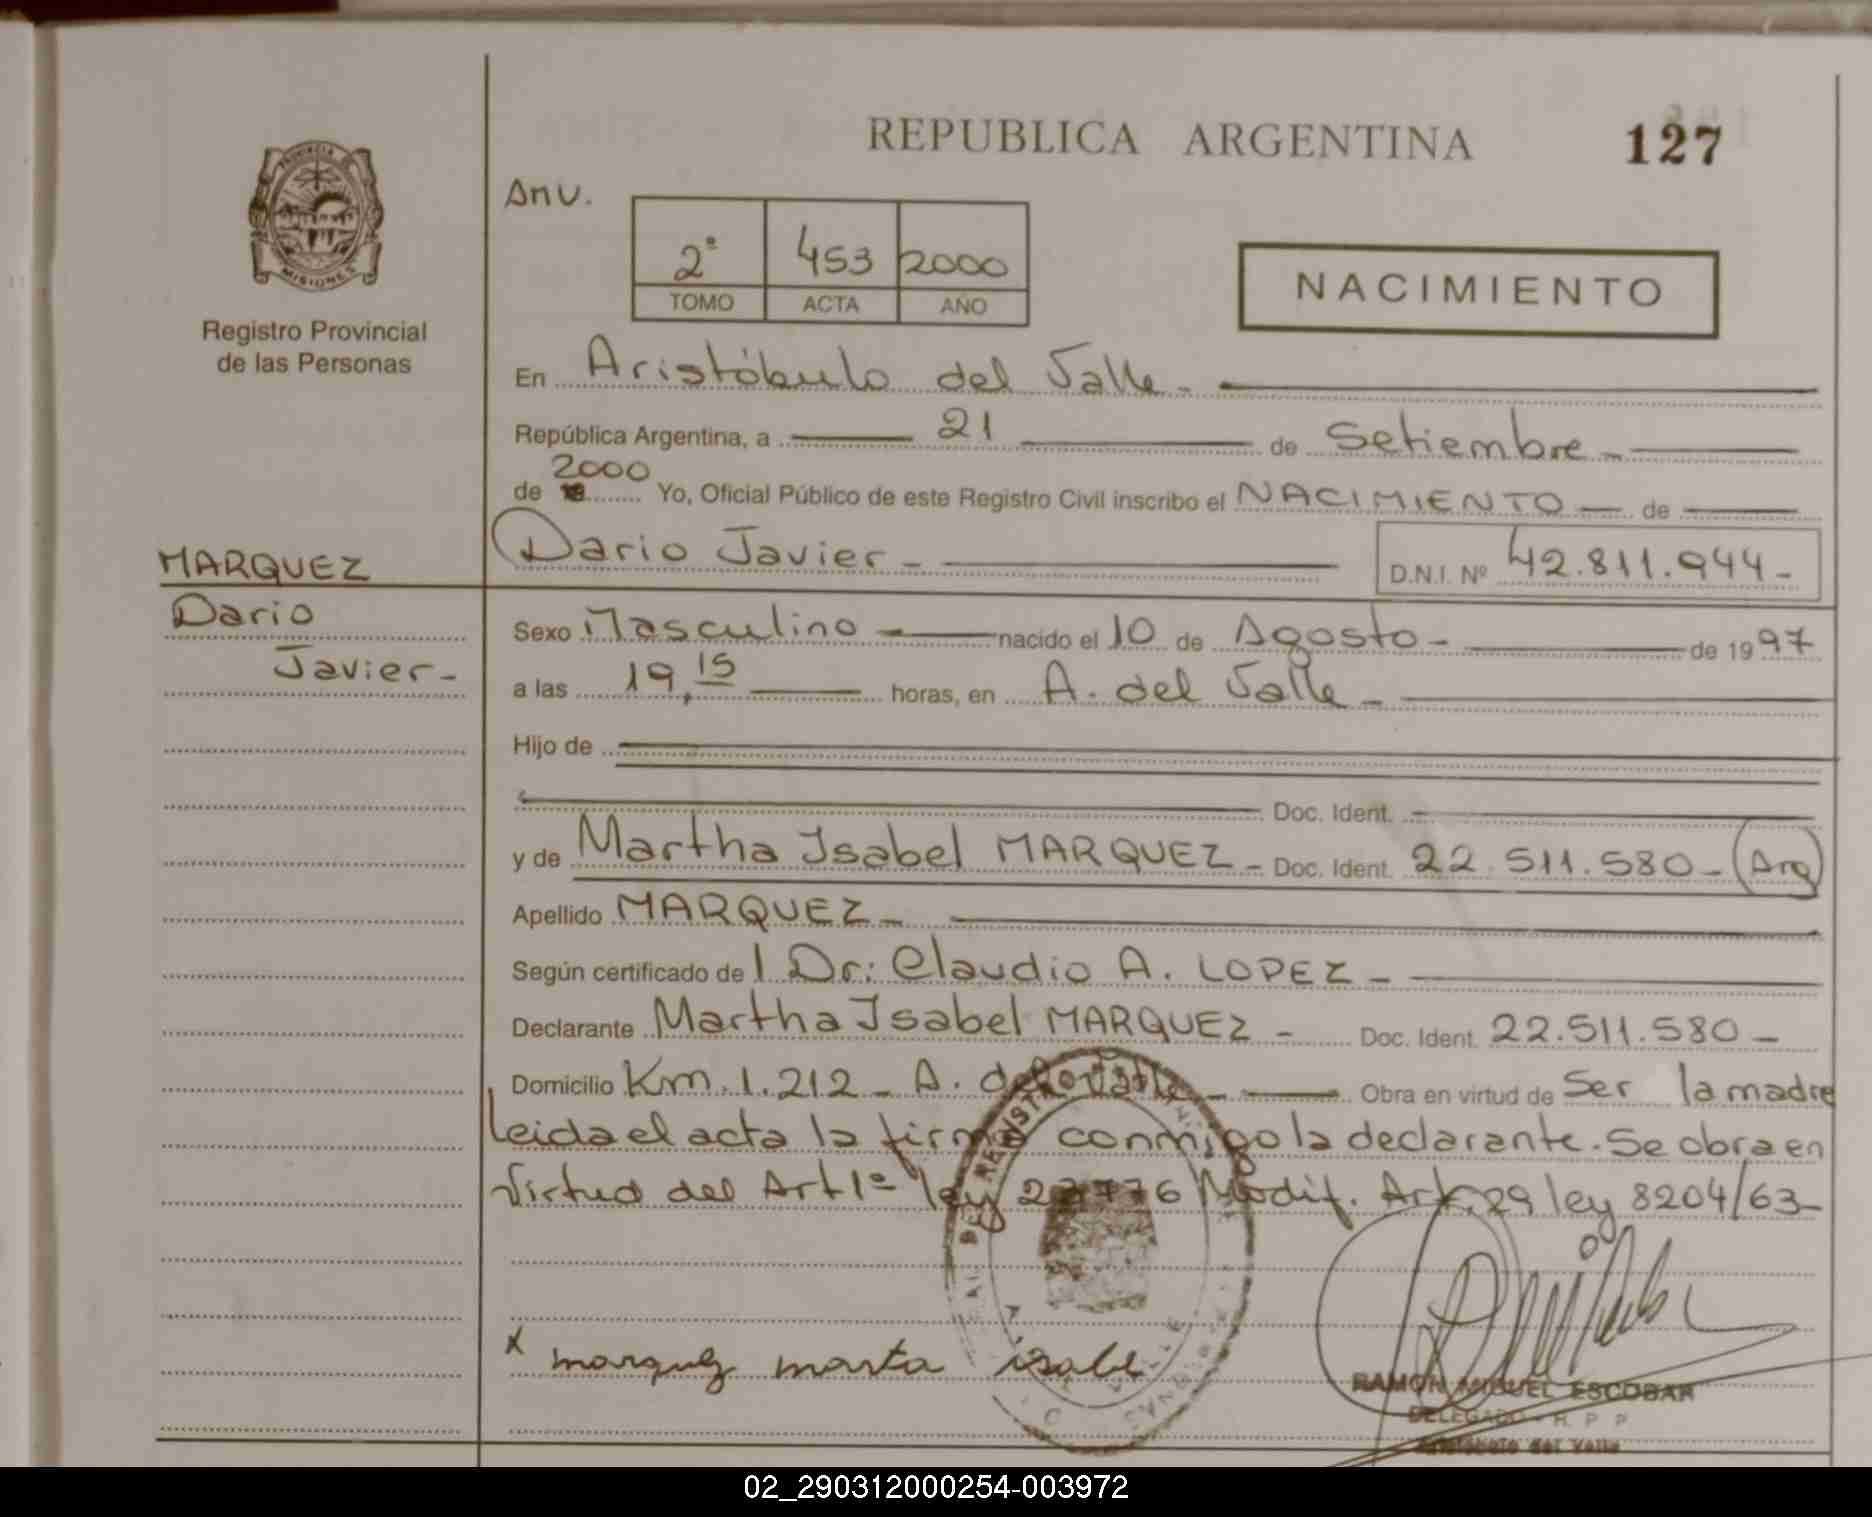 REPUBLICA ARGENTINA
127
PROVINCIA DE
MISIONES
Registro Provincial
de las Personas
Anv.
2º 453 2000
TOMO ACTA AÑO
NACIMIENTO
En Aristóbulo del Valle -
República Argentina, a 21 de Setiembre -
2000
de 19 Yo, Oficial Público de este Registro Civil inscribo el NACIMIENTO de
MARQUEZ
Dario Javier -
Dario Javier - D.N.I. Nº 42.811.944-
Sexo Masculino nacido el 10 de Agosto - de 1997
a las 19,15 horas, en A. del Valle -
Hijo de
Doc. Ident.
y de Martha Isabel MARQUEZ - Doc. Ident. 22.511.580 - (Arg)
Apellido MARQUEZ -
Según certificado de l Dr: Claudio A. LOPEZ -
Declarante Martha Isabel MARQUEZ - Doc. Ident. 22.511.580 -
Domicilio Km. 1.212 - A. del Valle - Obra en virtud de Ser la madre
Leida el acta la firma conmigo la declarante. Se obra en
Virtud del Art 1º ley 22776 Modif. Art. 29 ley 8204/63-
x marquez marta isabe
RAMON MIGUEL ESCOBAR
DELEGADO - R. P. P.
Aristóbulo del Valle
02_290312000254-003972